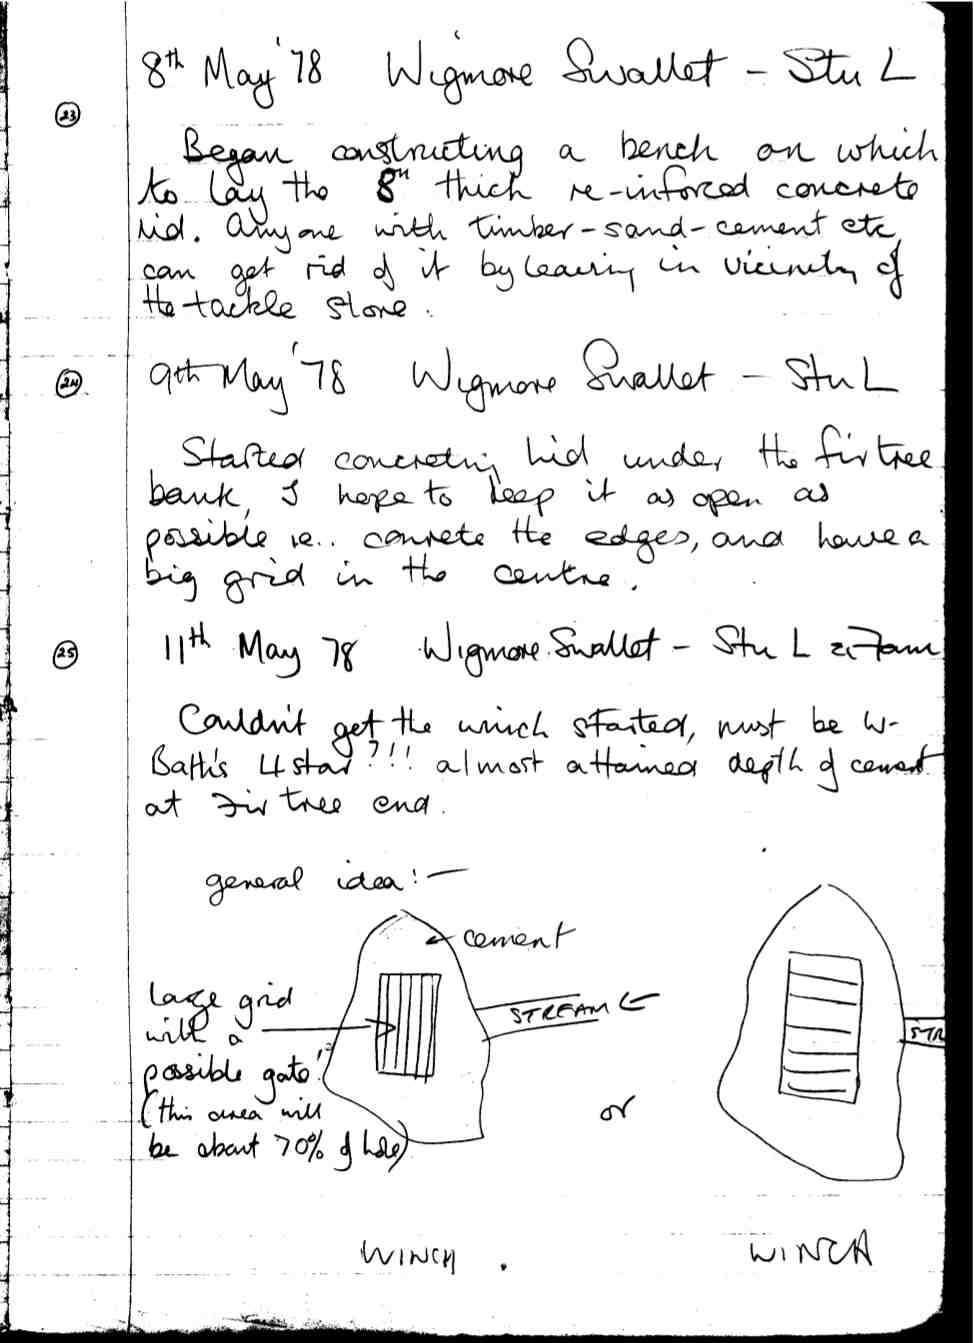 8th May '78 Wigmore Swallet - Stu L
23
Began constructing a bench on which
to lay the 8" thick re-inforced concrete
lid. Anyone with timber-sand-cement etc,
can get rid of it by leaving in vicinity of
the tackle store.
24
9th May '78 Wigmore Swallet - Stu L
Started concreting lid under the fir tree
bank, I hope to keep it as open as
possible ie.. concrete the edges, and have a
big grid in the centre.
25
11th May 78 Wigmore Swallet - Stu L 2-7am
Couldn't get the winch started, must be W-
Bath's 4 star?!!! almost attained depth of cement
at Fir tree end.
general idea:-
cement
Large grid
with a
possible gate!?
(this area will
be about 70% of hole)
STREAM
or
STR
WINCH.
WINCH